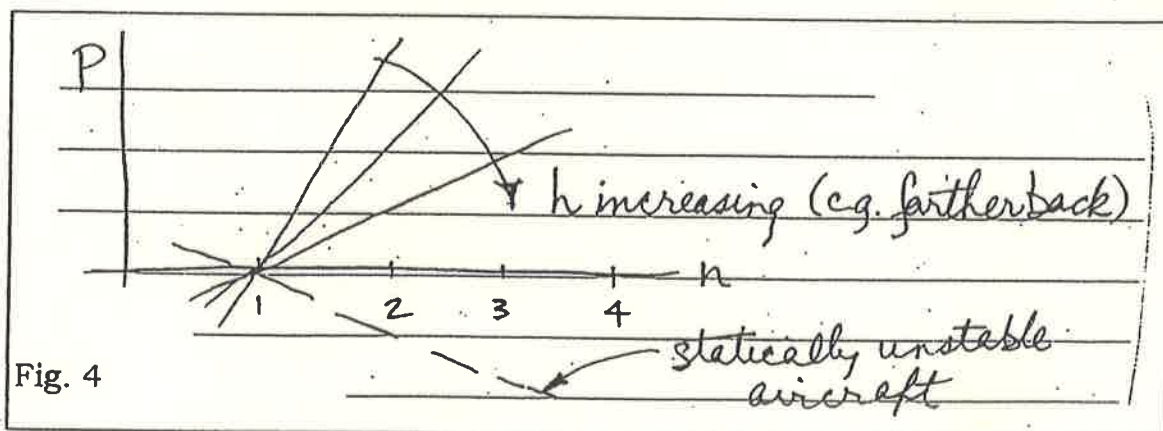 P
h increasing (c.g. farther back)
n
1 2 3 4
statically unstable
aircraft
Fig. 4